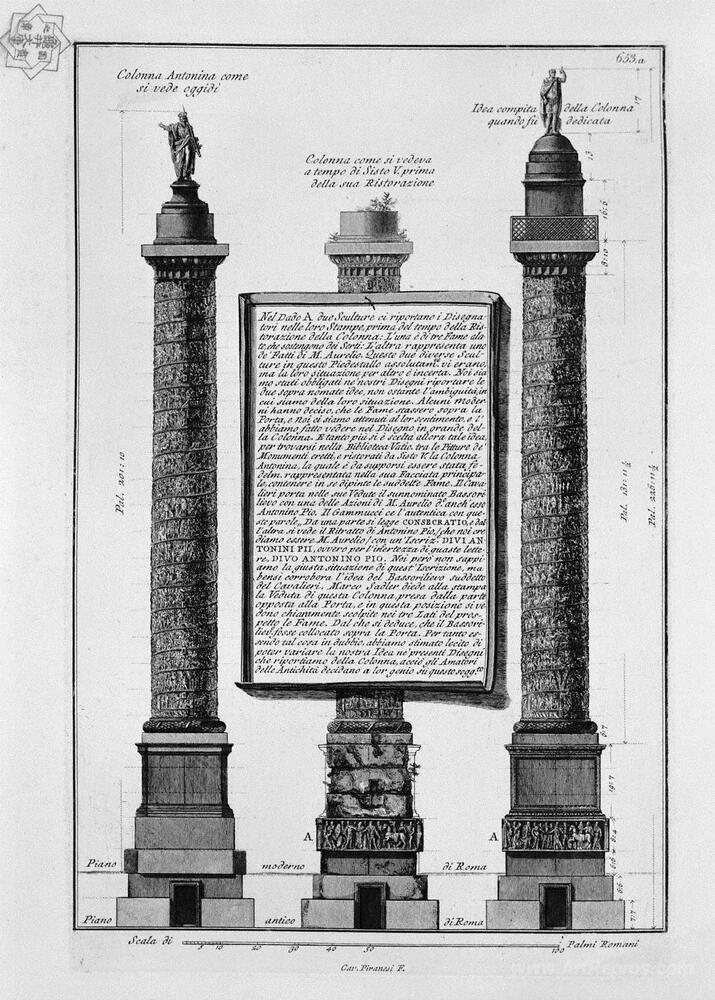 653.a
Colonna Antonina come
si vede oggidì
Colonna come si vedeva
a tempo di Sisto V. prima
della sua Ristorazione
Idea compita della Colonna
quando fù dedicata
Nel Dado A due Sculture ci riportano i Disegna
tori nelle loro Stampe, prima del tempo della Ris
torazione della Colonna: L'una è di tre Fame ala
te, che sostengono dei Serti: L'altra rappresenta uno
de' Fatti di M. Aurelio. Queste due diverse Scul
ture in questo Piedestallo assolutam. vi erano,
ma la loro situazione per altro è incerta. Noi sia
mo stati obbligati ne' nostri Disegni riportare le
due sopra nomate idee, non ostante l'ambiguità, in
cui siamo della loro situazione. Alcuni moder
ni hanno deciso, che le Fame stassero sopra la
Porta, e noi ci siamo attenuti al lor sentimento, e l'
abbiamo fatto vedere nel Disegno in grande del
la Colonna. E tanto più si è scelta allora tale idea,
per trovarsi nella Biblioteca Vatic. tra le Pitture de'
Monumenti eretti, e ristorati da Sisto V. la Colonna
Antonina, la quale è da supporsi essere stata fe
delm. rappresentata nella sua Facciata principa
le, contenere in se dipinte le suddette Fame. Il Cava
lieri porta nelle sue Vedute il sunnominato Bassori
lievo con una delle Azioni di M. Aurelio d.º anch'esso
Antonino Pio. Il Gammucci ce l'autentica con que
ste parole,, Da una parte si legge CONSECRATIO, e dal
l'altra si vede il Ritratto di Antonino Pio, (che noi cre
diamo essere M. Aurelio) con un' Iscriz.e DIVI AN
TONINI PII, ovvero per l'intertezza di quaste lette
re, DIVO ANTONINO PIO. Noi però non sappi
amo la giusta situazione di quest' Iscrizione, ma
bensì corrobora l'idea del Bassorilievo suddetto
del Cavalieri. Marco Sadler diede alla stampa
la Veduta di questa Colonna, presa dalla parte
opposta alla Porta, e in questa posizione si ve
dono chiaramente scolpite nei tre Lati del pros
petto le Fame. Dal che si deduce, chè il Bassori
lievo fosse collocato sopra la Porta. Per tanto es
sendo tal cosa in dubbio, abbiamo stimato lecito di
poter variare la nostra Idea ne' presenti Disegni
che riportiamo della Colonna, acciò gli Amatori
delle Antichità decidano a lor genio su questo sogg.to
Pal. 201: 10
17
13
16: 6
8: 10
Pal. 131: 11 ½
Pal. 226: 11 ½
6: 7
19: 7
A
A
Piano moderno di Roma
Piano antico di Roma
Scala di 5 10 20 30 40 50 100 Palmi Romani
Cav. Piranesi F.